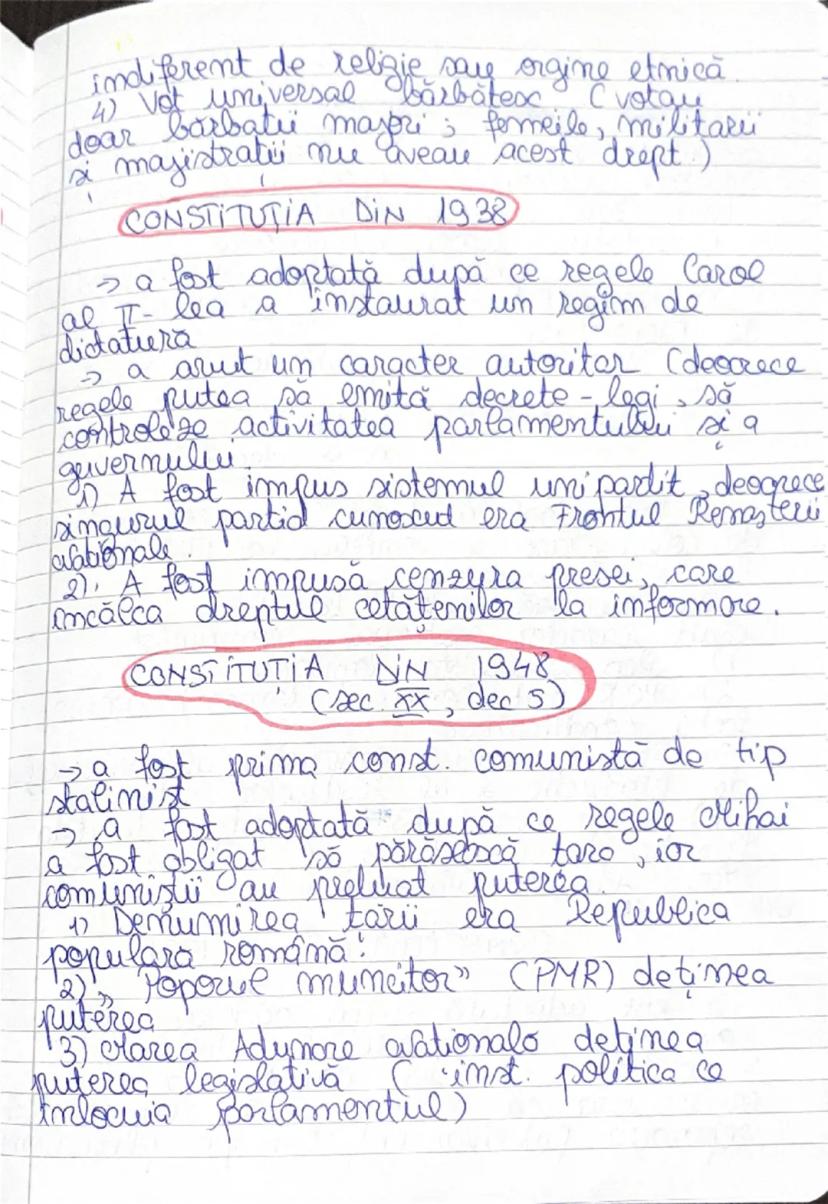 indiferent de religie sau orgine etnică.
4) Vot universal bărbătesc (votau
doar bărbații majori; femeile, militarii
și magistrații nu aveau acest drept)
CONSTITUȚIA DIN 1938
→ a fost adoptată după ce regele Carol
al II-lea a instaurat un regim de
dictatură
→ a avut un caracter autoritar (deoarece
regele putea să emită decrete-legi, să
controleze activitatea parlamentului și a
guvernului.
1) A fost impus sistemul unipartit, deoarece
singurul partid cunoscut era Frontul Renașterii
Naționale.
2). A fost impusă cenzura presei, care
încălca dreptul cetățenilor la informare.
CONSTITUȚIA DIN 1948
(sec XX, dec 5)
→ a fost prima const. comunistă de tip
stalinist
→ a fost adoptată după ce regele Mihai
a fost obligat să părăsească țara, iar
comuniștii au preluat puterea.
1) Denumirea țării era Republica
populara română!
2) „Poporul muncitor” (PMR) deținea
puterea
3) Marea Adunare Națională deținea
puterea legislativă (inst. politica ce
înlocuia parlamentul)